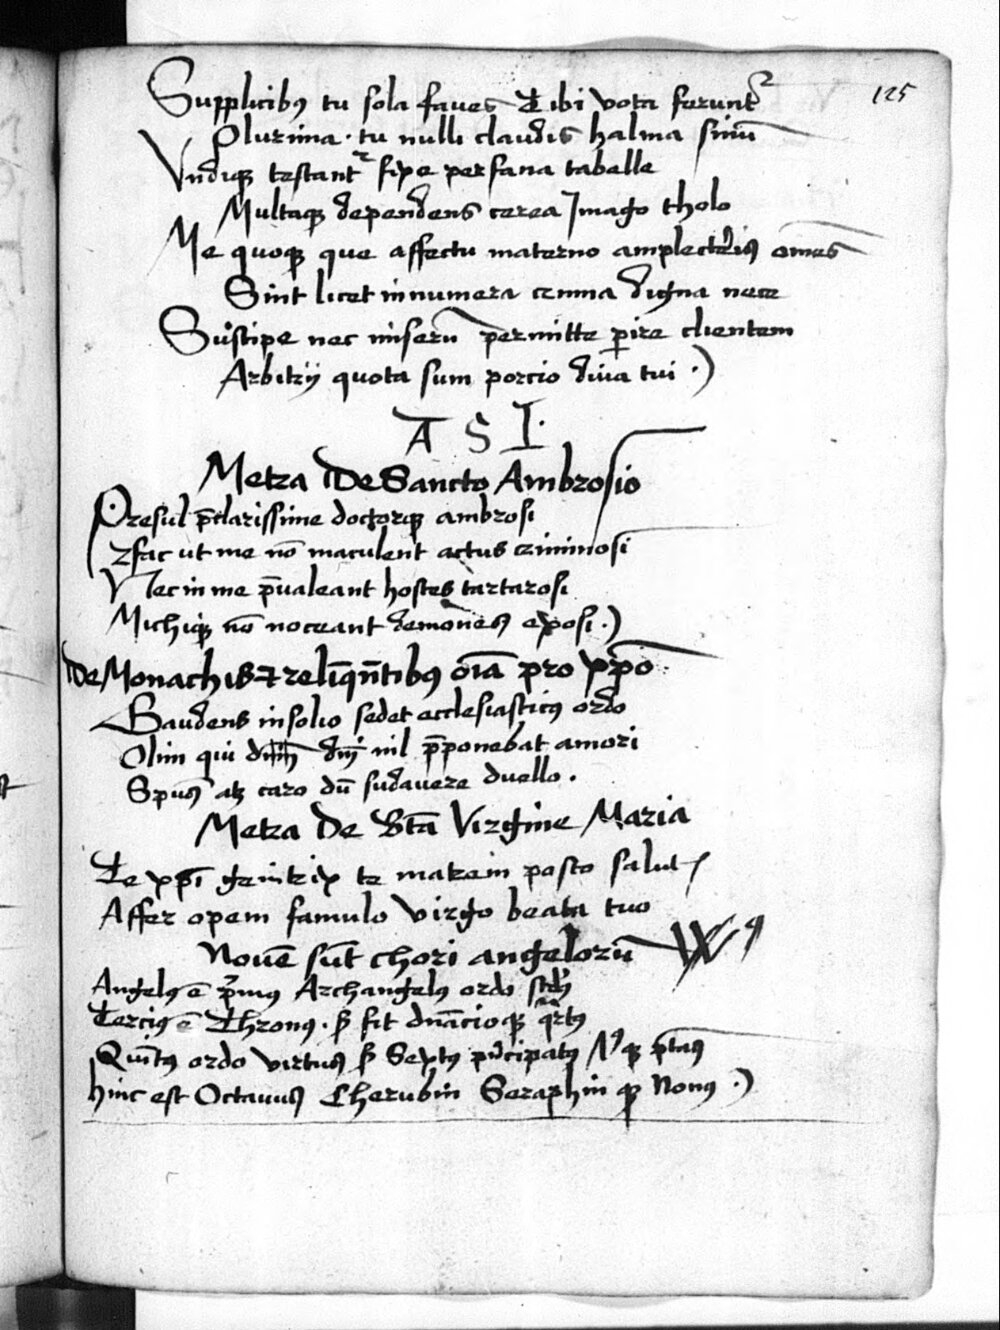 125
Supplicibꝰ tu sola faues Tibi vota ferunt᷑
Plurima · tu nulli claudis halma sinū
Vndiqꝫ testant᷑ fixe per fana tabelle
Multaqꝫ dependens cerea Jmago tholo
Me quoqꝫ que affectu materno amplecteris omēs
Sint licet innumera crimina digna nece
Suscipe nec miserū permitte ꝑire clientem
Arbitrij quota sum porcio diua tui ·)
A S I ·
Metra De Sancto Ambrosio
Presul p̄clarissime doctorqꝫ ambrosi
fac ut me nō maculent actus criminosi
Nec in me p̄ualeant hostes tartarosi
Michiqꝫ nō noceant demones exosi ·)
De Monachis ⁊ relīqn̄tibꝰ oīa pro xp̄o
Gaudens in solio sedet ecclesiasticꝰ ordo
Olim qui dn̄i nil p̄ponebat amori
Spūs atqꝫ caro dū sudauere duello ·
Metra De Bt̄a Virgine Maria
Te xp̄i genitrix te matrem posco salutꝭ
Affer opem famulo virgo beata tuo
Nouē sūt chori angelorū
Angelꝰ ē p̄mꝰ Archangelꝰ ordo scdꝰ
Terciꝰ ē Thronꝰ · ß fit dn̄acioqꝫ qrtꝰ
Quītꝰ ordo virtus ß Sextꝰ pⁱncipatꝰ ptās
hinc est Octauus Cherubin Seraphin qꝫ Nonꝰ ·)